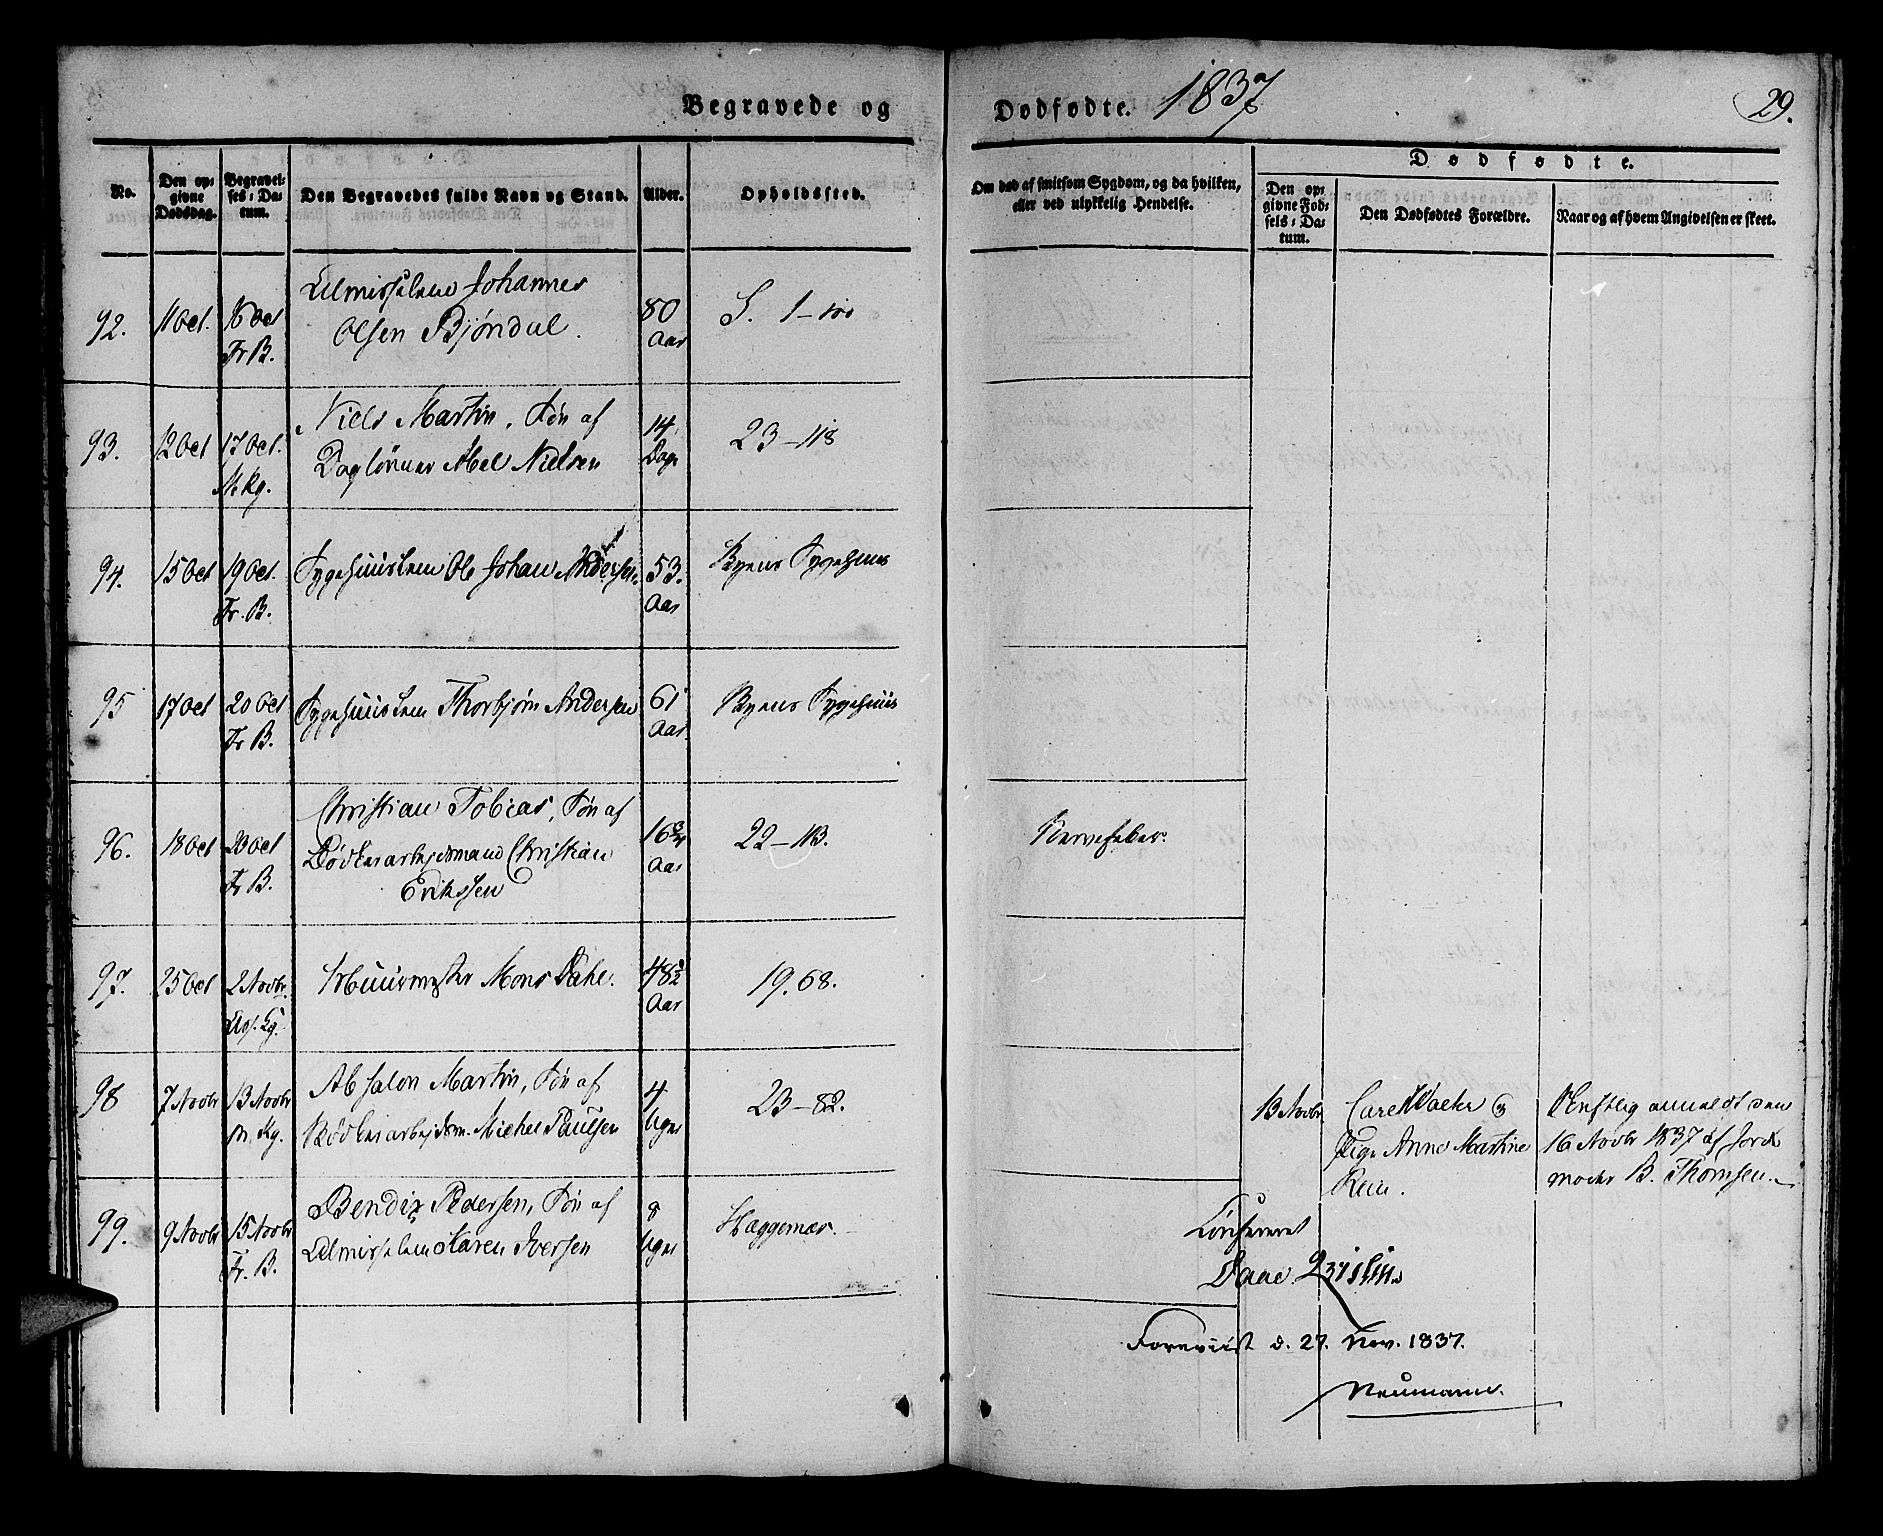 Begravede og Dødfødte. 1837 29.
No.
Den opgivne Dødsdag.
Begravelses-Datum.
Den Begravedes fulde Navn og Stand.
Alder.
Opholdssted.
Om død af smitsom Sygdom, og da hvilken,
eller ved ulykkelig Hendelse.
Dødfødte.
Den opgivne Fødsels-Datum.
Den Dødfødtes Forældre.
Naar og af hvem Angivelsen er skeet.
92. 11 Oct. 16 Oct Fr B.
Almisselem Johannes
Olsen Bjöndal.
80 Aar
S. 1-100
93. 12 Oct 17 Oct. N. Kg.
Niels Martin, Søn af
Daglönner Abel Nielsen
14 Dage
23-118
94. 15 Oct 19 Oct. Fr. B.
Sygehuuslem Ole Johan Andersen
53. Aar
Byens Sygehuus
95 17 Oct 20 Oct Fr B.
Sygehuuslem Thorbjörn Andersen
61 Aar.
Byens Sygehuus
96. 18 Oct 20 Oct Fr B.
Christian Tobias, Søn af
Bödkerarbejdsmand Christian
Eriksen
16 3/4 Aar
22-113.
Nervefeber.
97. 25 Oct 2 Novbr.
Muurmester Mons Dahl.
48 1/2 Aar
19.68.
98 7 Novbr 13 Novbr N. Kg.
Absalon Martin, Søn af
Bödkerarbejdsm. Michel Paulsen
4 Ugr
23-82.
13 Novbr
Pige Anne Martine
anmeldt den
16 Novbr 1837 af Jord
moder B. Thomsen.
99. 9 Novbr 15 Novbr Fr. B.
Bendix Pedersen, Søn af
Almisselem Karen Iversen
8 Ugr
Hæggernæs.
Confereret
Daae. Qvislin
Foreviist d. 27. Nov. 1837.
Neumann.